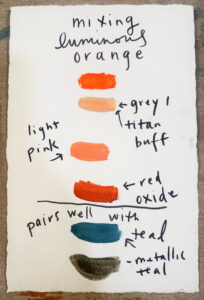 mixing
luminous
orange
grey 1
titan
buff
light
pink
red
oxide
pairs well with
teal
metallic
teal